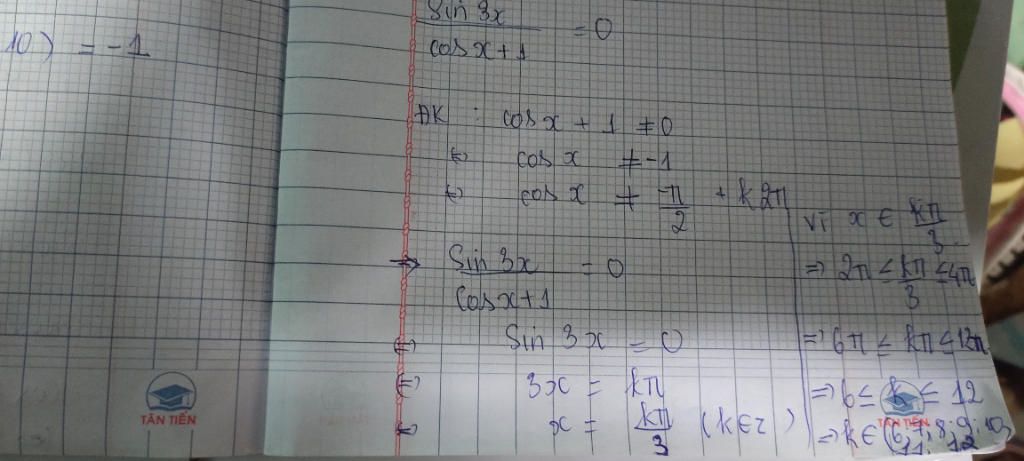 10) = -1
sin 3x / cos x + 1 = 0
ĐK : cos x + 1 ≠ 0
⇔ cos x ≠ -1
⇔ cos x ≠ -π/2 + k2π
⇒ sin 3x / cos x + 1 = 0
⇔ sin 3x = 0
⇔ 3x = kπ
⇔ x = kπ/3 (k∈Z)
vì x ∈ kπ/3
⇒ 2π ≤ kπ/3 ≤ 4π
⇒ 6π ≤ kπ ≤ 12π
⇒ 6 ≤ k ≤ 12
⇒ k ∈ (6; 7; 8; 9; 10;
11; 12
TÂN TIẾN
TÂN TIẾN